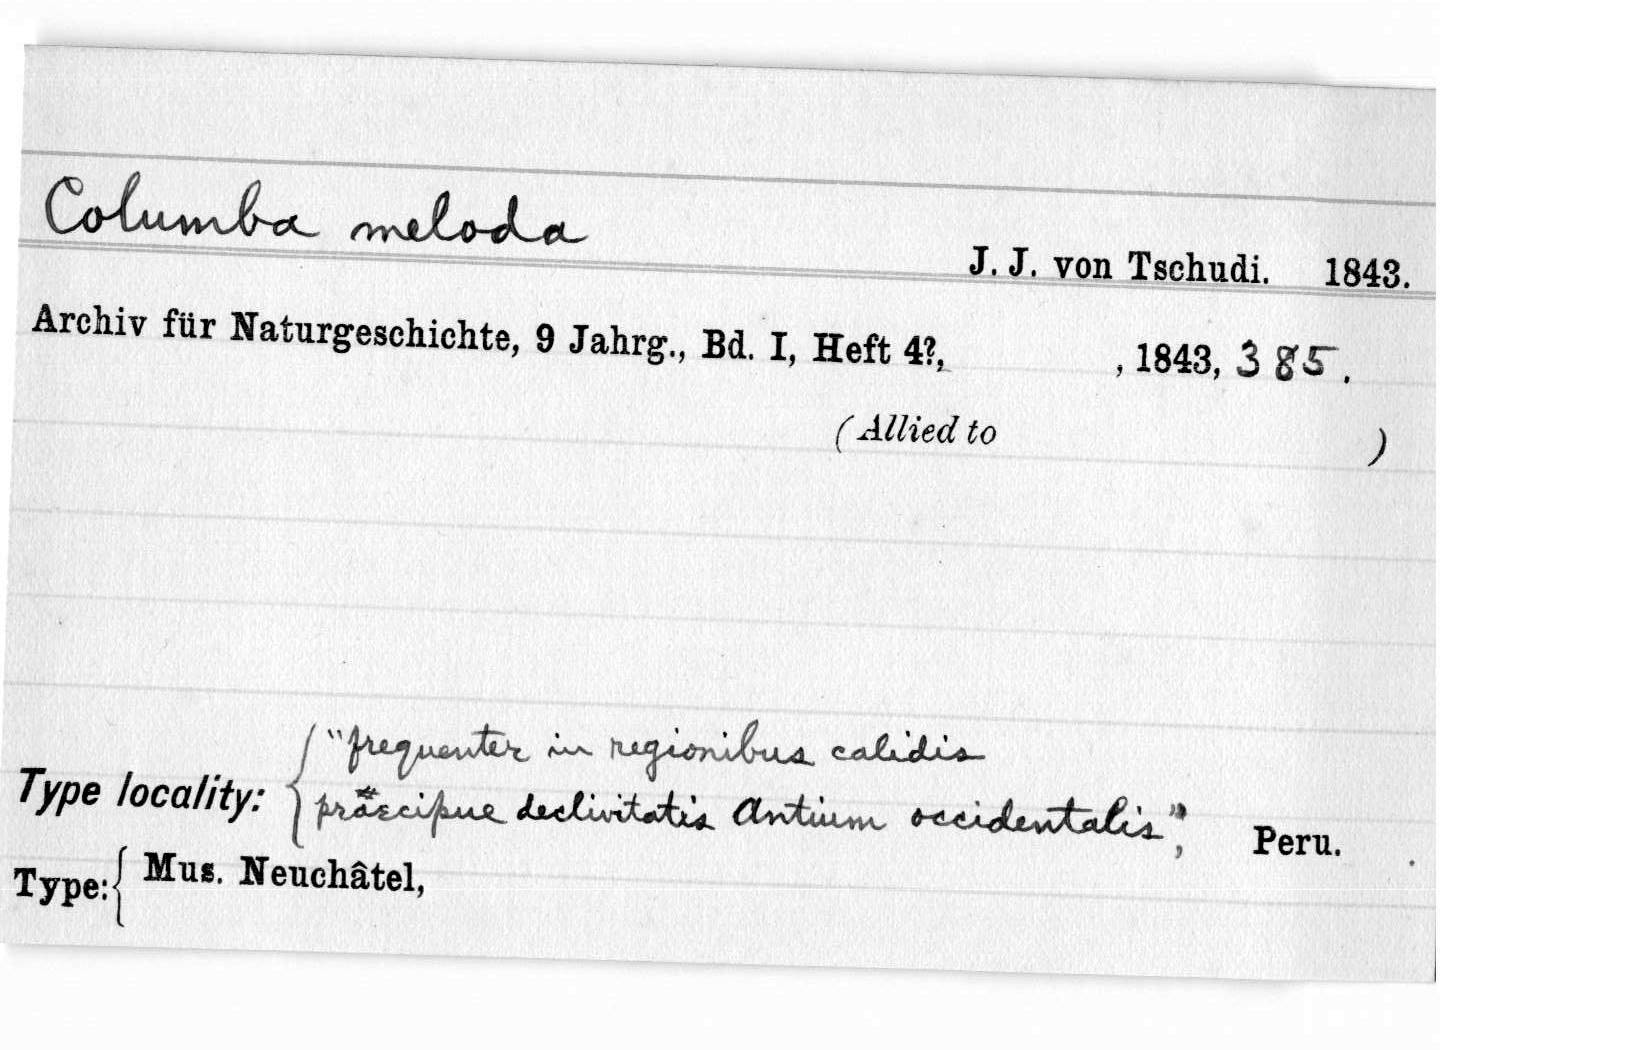 Columba meloda
J. J. von Tschudi. 1843.
Archiv für Naturgeschichte, 9 Jahrg., Bd. I, Heft 4?, , 1843, 385.
(Allied to )
Type locality: { "frequenter in regionibus calidis
præcipue declivitatis Antium occidentalis", Peru.
Type: { Mus. Neuchâtel,